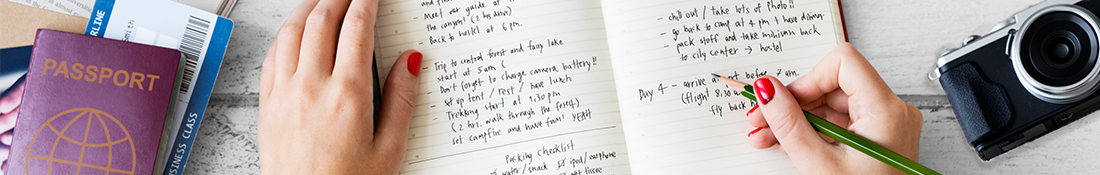 PASSPORT
RLINE
SINESS CLASS
Meet our guide at
the canyon! (2 hrs away)
- Back to hostel at 6 pm.
- Trip to central forest and fairy lake
start at 5 am (
Don't forget to charge camera battery!!
- Set up tent / rest / have lunch
Trekking start at 1:30 pm
(2 hrs. walk through the forest)
- set campfire and have fun! YEAH
Packing Checklist
water/snack ipod/earphone
- chill out / take lots of Photo!!
- go back to camp at 4 pm + have dinner
- pack stuff and take minivan back
to city center → hostel
Day 4 - arrive at before 7 am.
(flight 8:30
fly back